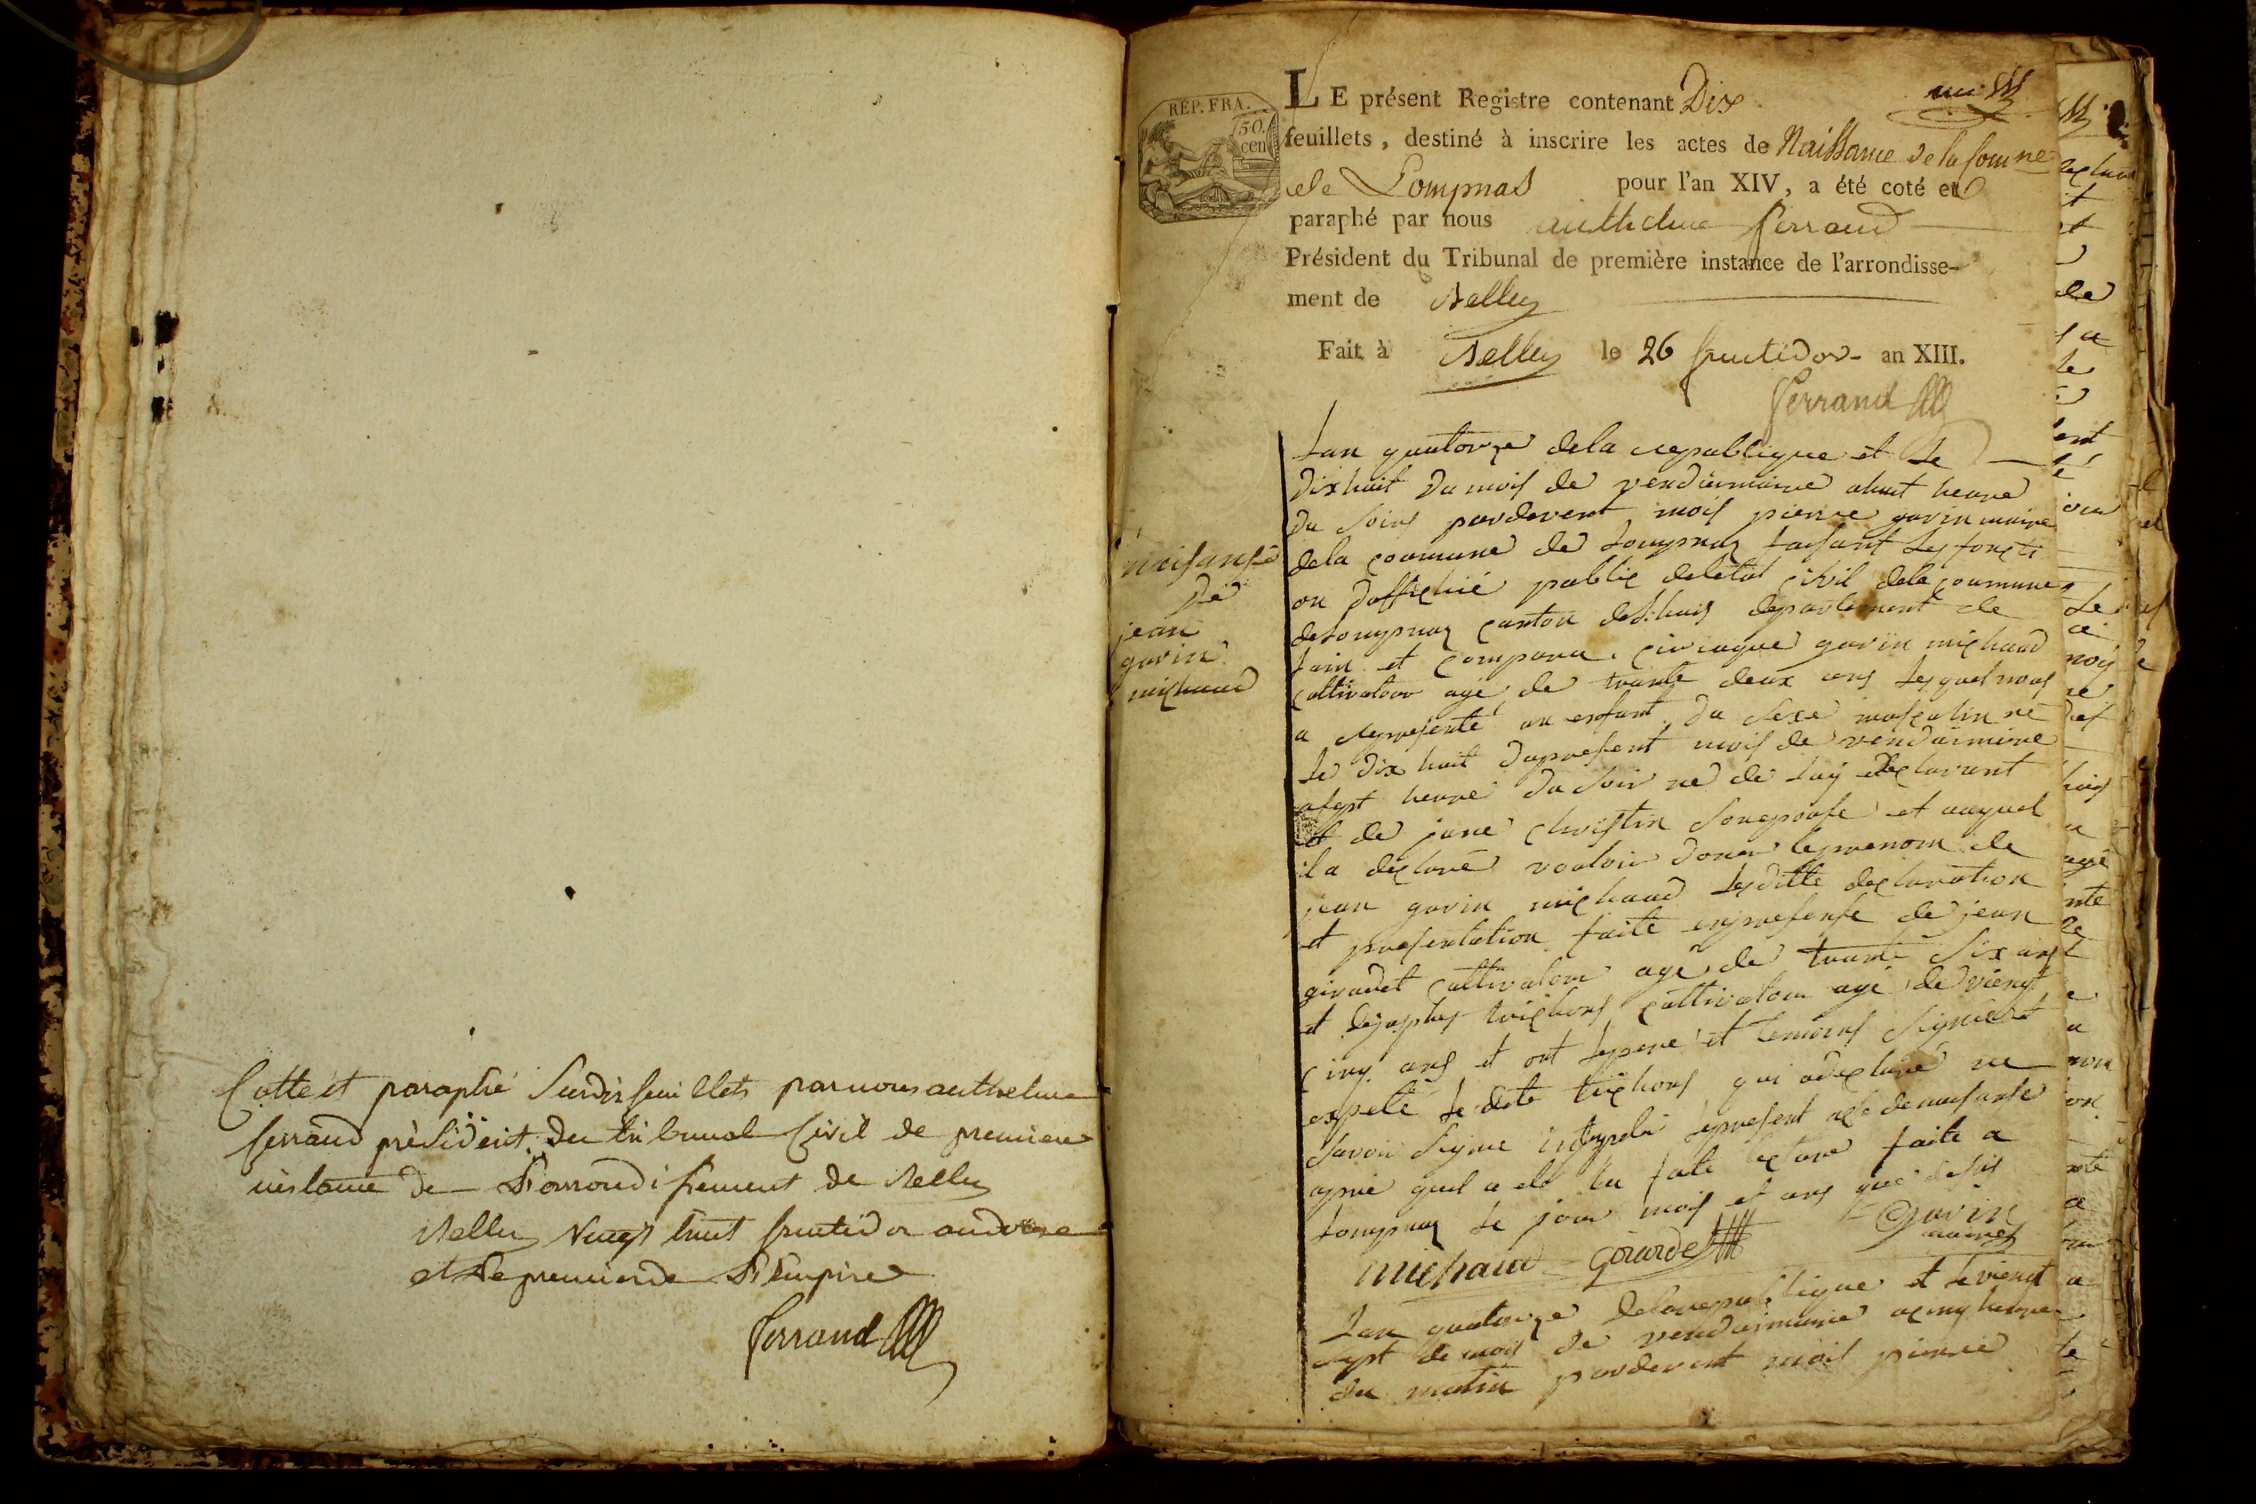 Cotté et paraphé Sur dix feuillets par nous anthelme
ferrand président du tribunal Civil de premiere
instance de L'arrondissement de Belley
Belley Vingt huit fructidor an
et Le premier de L'Empire
ferrand
REP. FRA.
50.
cen
un
LE présent Registre contenant Dix
feuillets, destiné à inscrire les actes de Naissance de la Comne
de Lompnas pour l'an XIV, a été coté et
paraphé par nous anthelme ferrand
Président du Tribunal de première instance de l'arrondisse-
ment de Belley
Fait à Belley le 26 fructidor an XIII.
ferrand
naisanse
de
jean
gavin
michaud
Lan quatorze dela republique et le
dix huit du mois de vendiemaire ahuit heure
du soirs pardevent mois pierre gavin maire
dela commune de Lompnaz faisant les foncti
on doffichié public deletat civil dela commune
de Lompnaz canton de departement de
Lain et comparu ciriaque gavin michaud
cultivatour agé de trante deux ans lesquel nous
a represente un enfant du sexe masculin né
le dix huit dupresent mois de vendaimiere
asept heure du soir né de luy declarant
et de jane christin son epouse et auquel
il a declaré vouloir doner le prenom de
jean gavin michaud lesditte declaration
et presentation faite enpresense de jean
girardet cultivatour agé de trante six ans
et cultivatour agé de viengt
cinq ans et ont le pere et temoins signiert
expeté le dete trichons qui adeclaré ne
savoir signe le present acte de naisanse
apres quil a eté lu fait
Lompnaz le jour mois et ans que desus
michaud girardet gavin
maire
Lan quatorze delarepublique et le viengt
sept de mois de vendaimiere acinq heure
du matin pardevent mois pierre